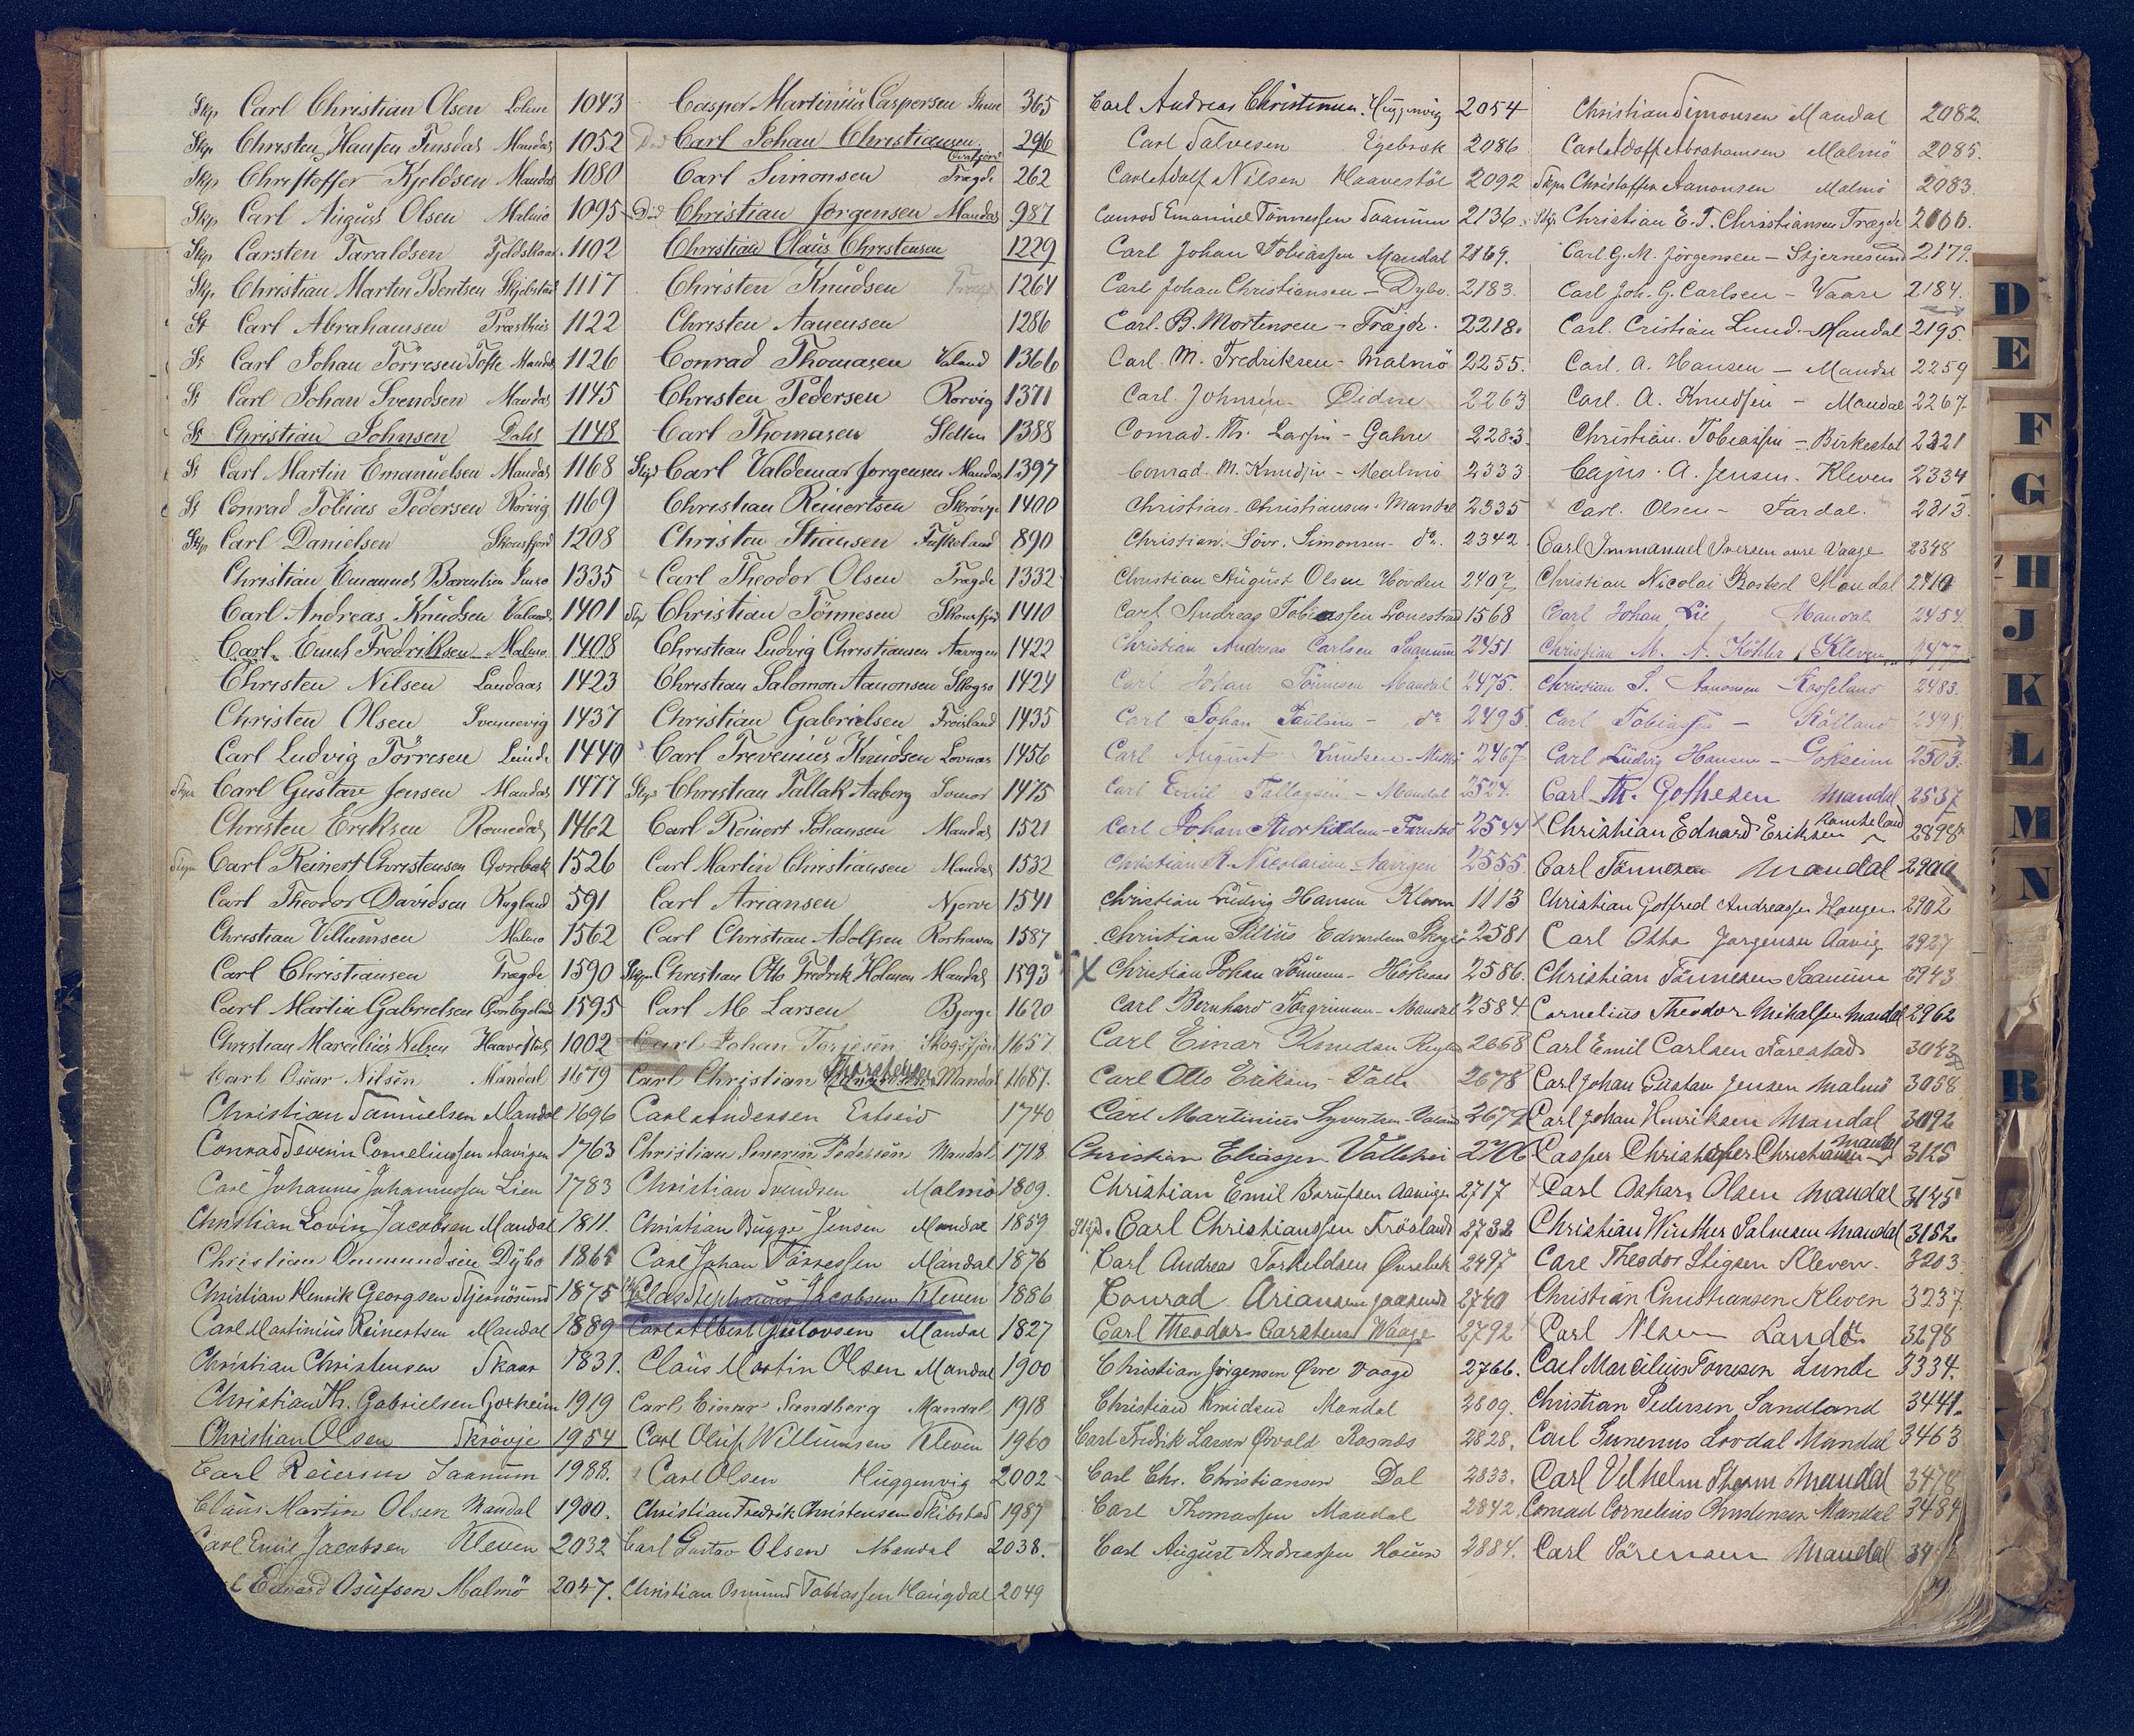 Skp Carl Christian Olsen 1043
Skp Christen Hansen Mandal 1052
Skp Christoffer Kjeldsen Mandal 1080
Skp Carl August Olsen Malmö 1095
Skp Carsten Taraldsen 1102
Skp Christian Martin Berntsen 1117
St Carl Abrahamsen 1122
St Carl Johan Törresen Tofte Mandal 1126
St Carl Johan Svendsen Mandal 1145
St Christian Johnsen 1148
St Carl Martin Emanuelsen Mandal 1168
St Conrad Tobias Pedersen Rörvig 1169
Skp Carl Danielsen Skonsfjord 1208
Christian Emanuel Barentsen 1335
Carl Andreas Knudsen Valand 1401
Carl Emil Fredriksen Malmö 1408
Christen Nilsen Landaas 1423
Christen Olsen Svennevig 1437
Carl Ludvig Törresen Lunde 1440
Carl Gustav Jensen Mandal 1477
Christen Eriksen Romedal 1462
Carl Reinert Christensen 1526
Carl Theodor Davidsen Rugland 591
Christian Villumsen Malmö 1562
Carl Christiansen Tragde 1590
Carl Martin Gabrielsen 1595
Christian Marcelius Nilsen Haavestöl 1002
Carl Oscar Nilsen Mandal 1679
Christian Samuelsen Mandal 1696
Conrad Severin Corneliussen Aavigen 1763
Carl Johannes Johannessen Lien 1783
Christian Lovin Jacobsen Mandal 1811
Christian Ommundsen Dybo 1865
Christian Henrik Georgsen Stjernösund 1875
Carl Martinius Reinertsen Mandal 1889
Christian Christensen Skaar 1831
Christian Th. Gabrielsen Goxheim 1919
Christian Olsen Skrövje 1954
Carl Reiersen Saanum 1988.
Claus Martin Olsen Mandal 1900.
Carl Emil Jacobsen Kleven 2032
Edvard Osufsen Malmö 2047.
Casper Martinius Caspersen 365
Död Carl Johan Christiansen 296
Carl Simonsen Tragde 262
Död Christian Jorgensen Mandal 987
Christian Olaus Christensen 1229
Christen Knudsen 1264
Christen Aanensen 1286
Conrad Thomasen Valand 1366
Christen Pedersen Rorvig 1371
Carl Thomasen 1388
Skp Carl Valdemar Jorgensen Mandal 1397
Christian Reinertsen Skrövje 1400
Christen Stiansen 890
Carl Theodor Olsen Tragde 1332
Skp Christian Tönnesen Skonsfjord 1410
Christian Ludvig Christiansen Aavigen 1422
Christian Salomon Aanonsen Skogso 1424
Christian Gabrielsen Froisland 1435
Carl Trevenius Knudsen Lovnas 1456
Skp Christian Tallak Aaberg 1475
Carl Reinert Johansen Mandal 1521
Carl Martin Christiansen Mandal 1532
Carl Ariansen Njerve 1541
Carl Christian Adolfsen Roshaven 1587
Skp Christian Otto Fredrik Holmen Mandal 1593
Carl M Larsen Bjerge 1620
Carl Johan Terjesen Skogsfjord 1657
Carl Christian Thorstensen Mandal 1687.
Carl Andersen 1740
Christian Severin Pedersen Mandal 1718
Christian Svendsen Malmö 1809.
Christian Bugge Jensen Mandal 1859
Carl Johan Törressen Mandal 1876
Clas Stephanus Jacobsen Kleven 1886
Carl Albert Gulovsen Mandal 1827
Claus Martin Olsen Mandal 1900
Carl Einar Sandberg Mandal 1918
Carl Oluf Willumsen Kleven 1960
Carl Olsen Huggenvig 2002
Christian Fredrik Christensen Skibstad 1987
Carl Gustav Olsen Mandal 2038.
Christian Osmund Tobiassen Haugdal 2049
Carl Andreas Christensen Huggenvig 2054
Carl Salvesen Egebræk 2086
Carl Adolf Nilsen Haavestöl 2092
Conrad Emanuel Tönnessen Saanum 2136
Carl Johan Tobiassen Mandal 2169.
Carl Johan Christiansen - Dybo. 2183.
Carl. B. Mortensen - Trægde. 2218.
Carl. M. Fredriksen - Malmö 2255.
Carl. Johnsen 2263
Conrad. Th. Larsen - Gahre 2283
Conrad. M. Knudsen - Malmö 2333
Christian. Christiansen. Mandal 2335
Christian. Sövr. Simonsen - do. 2342
Christian August Olsen Hörden 2407
Carl Andreas Tobiassen 1568
Christian Andreas Carlsen Saanum 2451
Carl Johan Tönnesen Mandal 2475.
Carl Johan Paulsen - do 2495.
Carl August Knudsen 2467
Carl Emil Tallagsen - Mandal 2524.
Carl Johan Thorkildsen - Farestad 2544
Christian R. Nicolaisen Aavigen 2555.
Christian Ludvig Hansen Kleven 1113
Christian Julius Edvardsen 2581
X Christian Johan Tönnesen - 2586.
Carl Bernhard Torgrimsen - Mandal 2584.
Carl Einar Knudsen 2668
Carl Otto Eriksen - Valle 2678
Carl Martinius Syvertsen Valand 2679
Christian Eliassen Vallehei 2706
Christian Emil Berntsen Aavigen 2717
Skp. Carl Christianssen Fröisland 2732
Carl Andreas Torkildsen Övrebæk 2497
Conrad Ariansen 2740
Carl Theodor Carstens Waage 2792
Christian Jörgensen Övre Vaage 2766.
Christian Knudsen Mandal 2809.
Carl Fredrik Larsen Rosnæs 2828.
Carl Chr. Christiansen Dal 2833.
Carl Thomassen Mandal 2842.
Carl August Andreassen 2884.
Christian Simonsen Mandal 2082
Carl Adolf Abrahamsen Malmö 2085.
Skpr Christoffer Aanonsen Malmö 2083.
Skp Christian E. T. Christiansen Trægde
Carl. G. M. Jörgensen - Skjernesund 2179.
Carl Joh. G. Carlsen - Vaare 2184.
Carl. Cristian Lund. - Mandal 2195.
Carl. A. Hansen - Mandal 2259
Carl. A. Knudsen - Mandal 2267
Christian. Tobiassen - Birkestøl 2321
Cajus. A. Jensen. Kleven 2334
Carl. Olsen - Fardal. 2313.
Carl Immanuel Iversen övre Vaage 2348
Christian Nicolai Bosted Mandal 2410
Carl Johan Lie Mandal 2454.
Christian M. A. Köhler Kleven 2477
Christian S. Aanonsen 2483.
Carl Tobiassen - 2498
Carl Ludvig Hansen - Goksem 2503.
Carl Th. Gothesen Mandal 2537
Christian Edvard Eriksen 2898
Carl Tönnesen Mandal 2900
Christian Gotfred Andreassen Haugen 2902
Carl Otto Jorgensen Aavig 2927
Christian Tönnesen Saanum 2943
Cornelius Theodor Mikalsen Mandal 2962
Carl Emil Carlsen Farestad 3043
Carl Johan Gustav Jensen Malmö 3058
Carl Johan Henriksen Mandal 3092
Casper Christoffer Christiansen Mandal 3125
Carl Oskar Olsen Mandal 3145
Christian Winther Salvesen Mandal 3152
Carl Theodor Stigsen Kleven. 3203
Christian Christiansen Kleven 3237
Carl Olsen Landö 3298
Carl Marcelius Tönnesen Lunde 3334.
Christian Pedersen Sandland 3441.
Carl Lovdal Mandal 3463
Carl Velhelm Mandal 3478
Conrad Cornelius Christensen Mandal 3484
Carl Sörensen Mandal
D
E
F
G
H
J
K
L
M
N
R